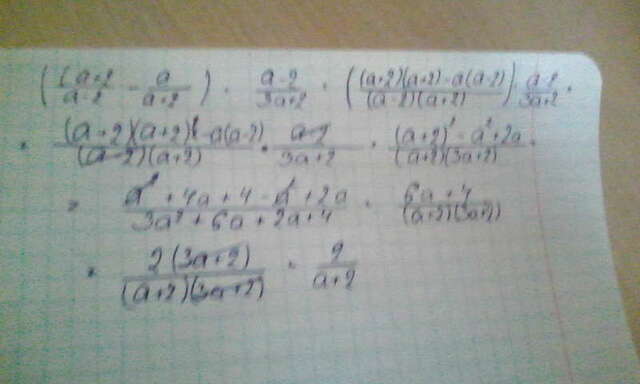 ( (a+2/a-2 - a/a+2 ) · a-2/3a+2 = ( (a+2)(a+2)-a(a-2)/(a-2)(a+2) ) · a-2/3a+2 =
= (a+2)(a+2)-a(a-2)/(a-2)(a+2) · a-2/3a+2 = (a+2)²-a²+2a/(a+2)(3a+2) =
= a²+4a+4-a²+2a/3a²+6a+2a+4 = 6a+4/(a+2)(3a+2)
= 2(3a+2)/(a+2)(3a+2) = 2/a+2